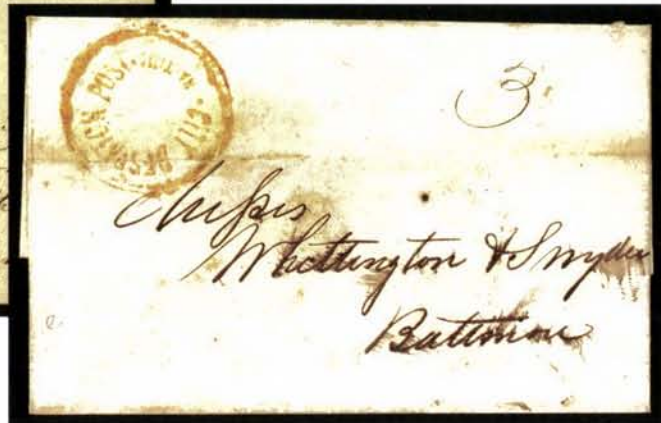 CITY DESPATCH POST
3
Messrs
Whittington & Snyder
Baltimore